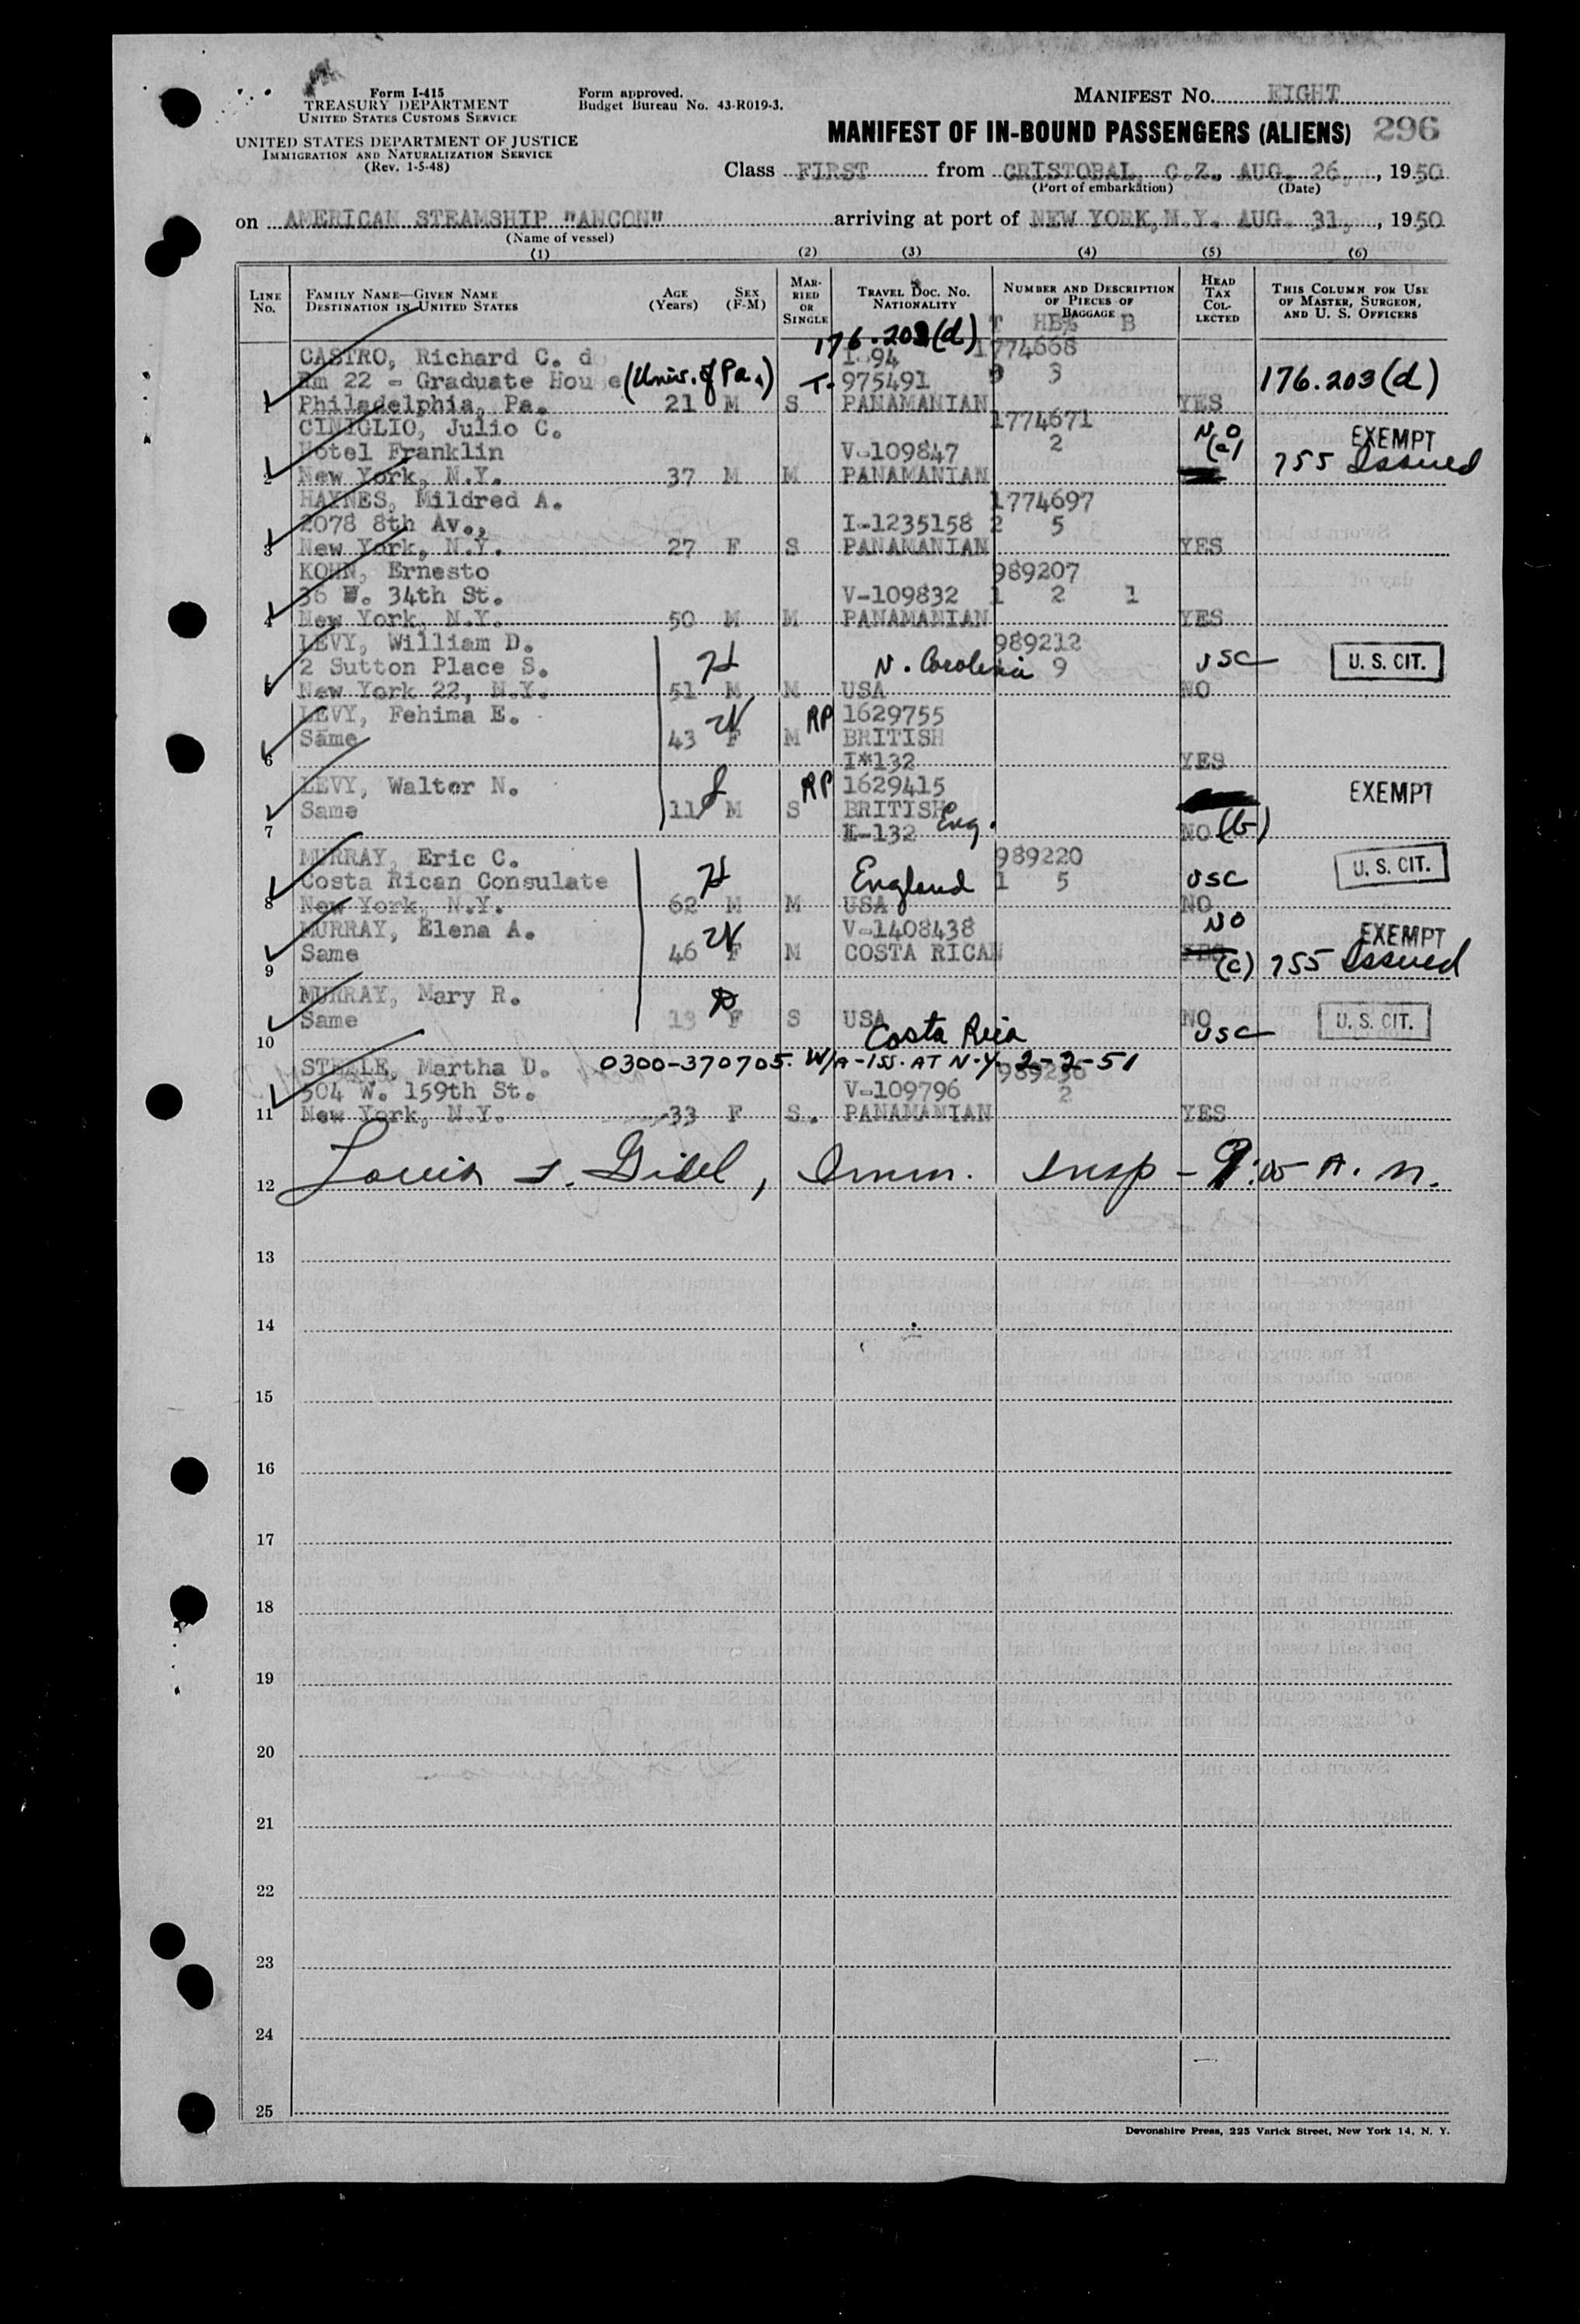 Form I-415
TREASURY DEPARTMENT
UNITED STATES CUSTOMS SERVICE
UNITED STATES DEPARTMENT OF JUSTICE
IMMIGRATION AND NATURALIZATION SERVICE
(Rev. 1-5-48)
Form approved.
Budget Bureau No. 43-R019-3.
MANIFEST NO. EIGHT
MANIFEST OF IN-BOUND PASSENGERS (ALIENS) 296
Class FIRST from CRISTOBAL, C.Z., AUG. 26, 1950
(Port of embarkation) (Date)
on AMERICAN STEAMSHIP "ANCON" arriving at port of NEW YORK, N.Y. AUG. 31, 1950
(Name of vessel)
(1) (2) (3) (4) (5) (6)
LINE No. FAMILY NAME—GIVEN NAME DESTINATION IN UNITED STATES AGE (Years) SEX (F-M) MARRIED OR SINGLE TRAVEL DOC. NO. NATIONALITY NUMBER AND DESCRIPTION OF PIECES OF BAGGAGE HEAD TAX COLLECTED THIS COLUMN FOR USE OF MASTER, SURGEON, AND U. S. OFFICERS
T HB% B
176.203(d)
CASTRO, Richard C. d I-94 1774668
Rm 22 - Graduate House (Univ. of Pa.) T- 975491 3 176.203(d)
1 Philadelphia, Pa. 21 M S PANAMANIAN YES
CINIGLIO, Julio C. 1774671 NO EXEMPT
Hotel Franklin V-109847 2 (a) 755 Issued
2 New York, N.Y. 37 M M PANAMANIAN
HAYNES, Mildred A. 1774697
2078 8th Av., I-1235158 2 5
3 New York, N.Y. 27 F S PANAMANIAN YES
KOHN, Ernesto 989207
36 W. 34th St. V-109832 1 2 1
4 New York, N.Y. 50 M M PANAMANIAN YES
LEVY, William D. 989212
2 Sutton Place S. H N. Carolina 9 USC U. S. CIT.
New York 22, N.Y. 51 M M USA NO
LEVY, Fehima E. W RP 1629755
Same 43 F M BRITISH
6 I*132 YES
LEVY, Walter N. S RP 1629415 EXEMPT
Same 11 M S BRITISH Eng.
7 I-132 NO (b)
MURRAY, Eric C. 989220 U. S. CIT.
Costa Rican Consulate H England 1 5 USC
8 New York, N.Y. 62 M M USA NO
MURRAY, Elena A. W V-1408438 NO EXEMPT
Same 46 F M COSTA RICAN YES (c) 755 Issued
9
MURRAY, Mary R. D
Same 13 F S USA NO U. S. CIT.
10 Costa Rica USC
STEELE, Martha D. 0300-370705. W/A-ISS. AT N.Y. 2-2-51
504 W. 159th St. V-109796 2
11 New York, N.Y. 33 F S. PANAMANIAN YES
12 Louis Imm. Insp - A. M.
13
14
15
16
17
18
19
20
21
22
23
24
25
Devonshire Press, 225 Varick Street, New York 14, N. Y.